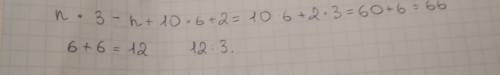 n · 3 - n + 10 · 6 + 2 = 10 6 + 2 · 3 = 60 + 6 = 66
6 + 6 = 12 12 : 3.